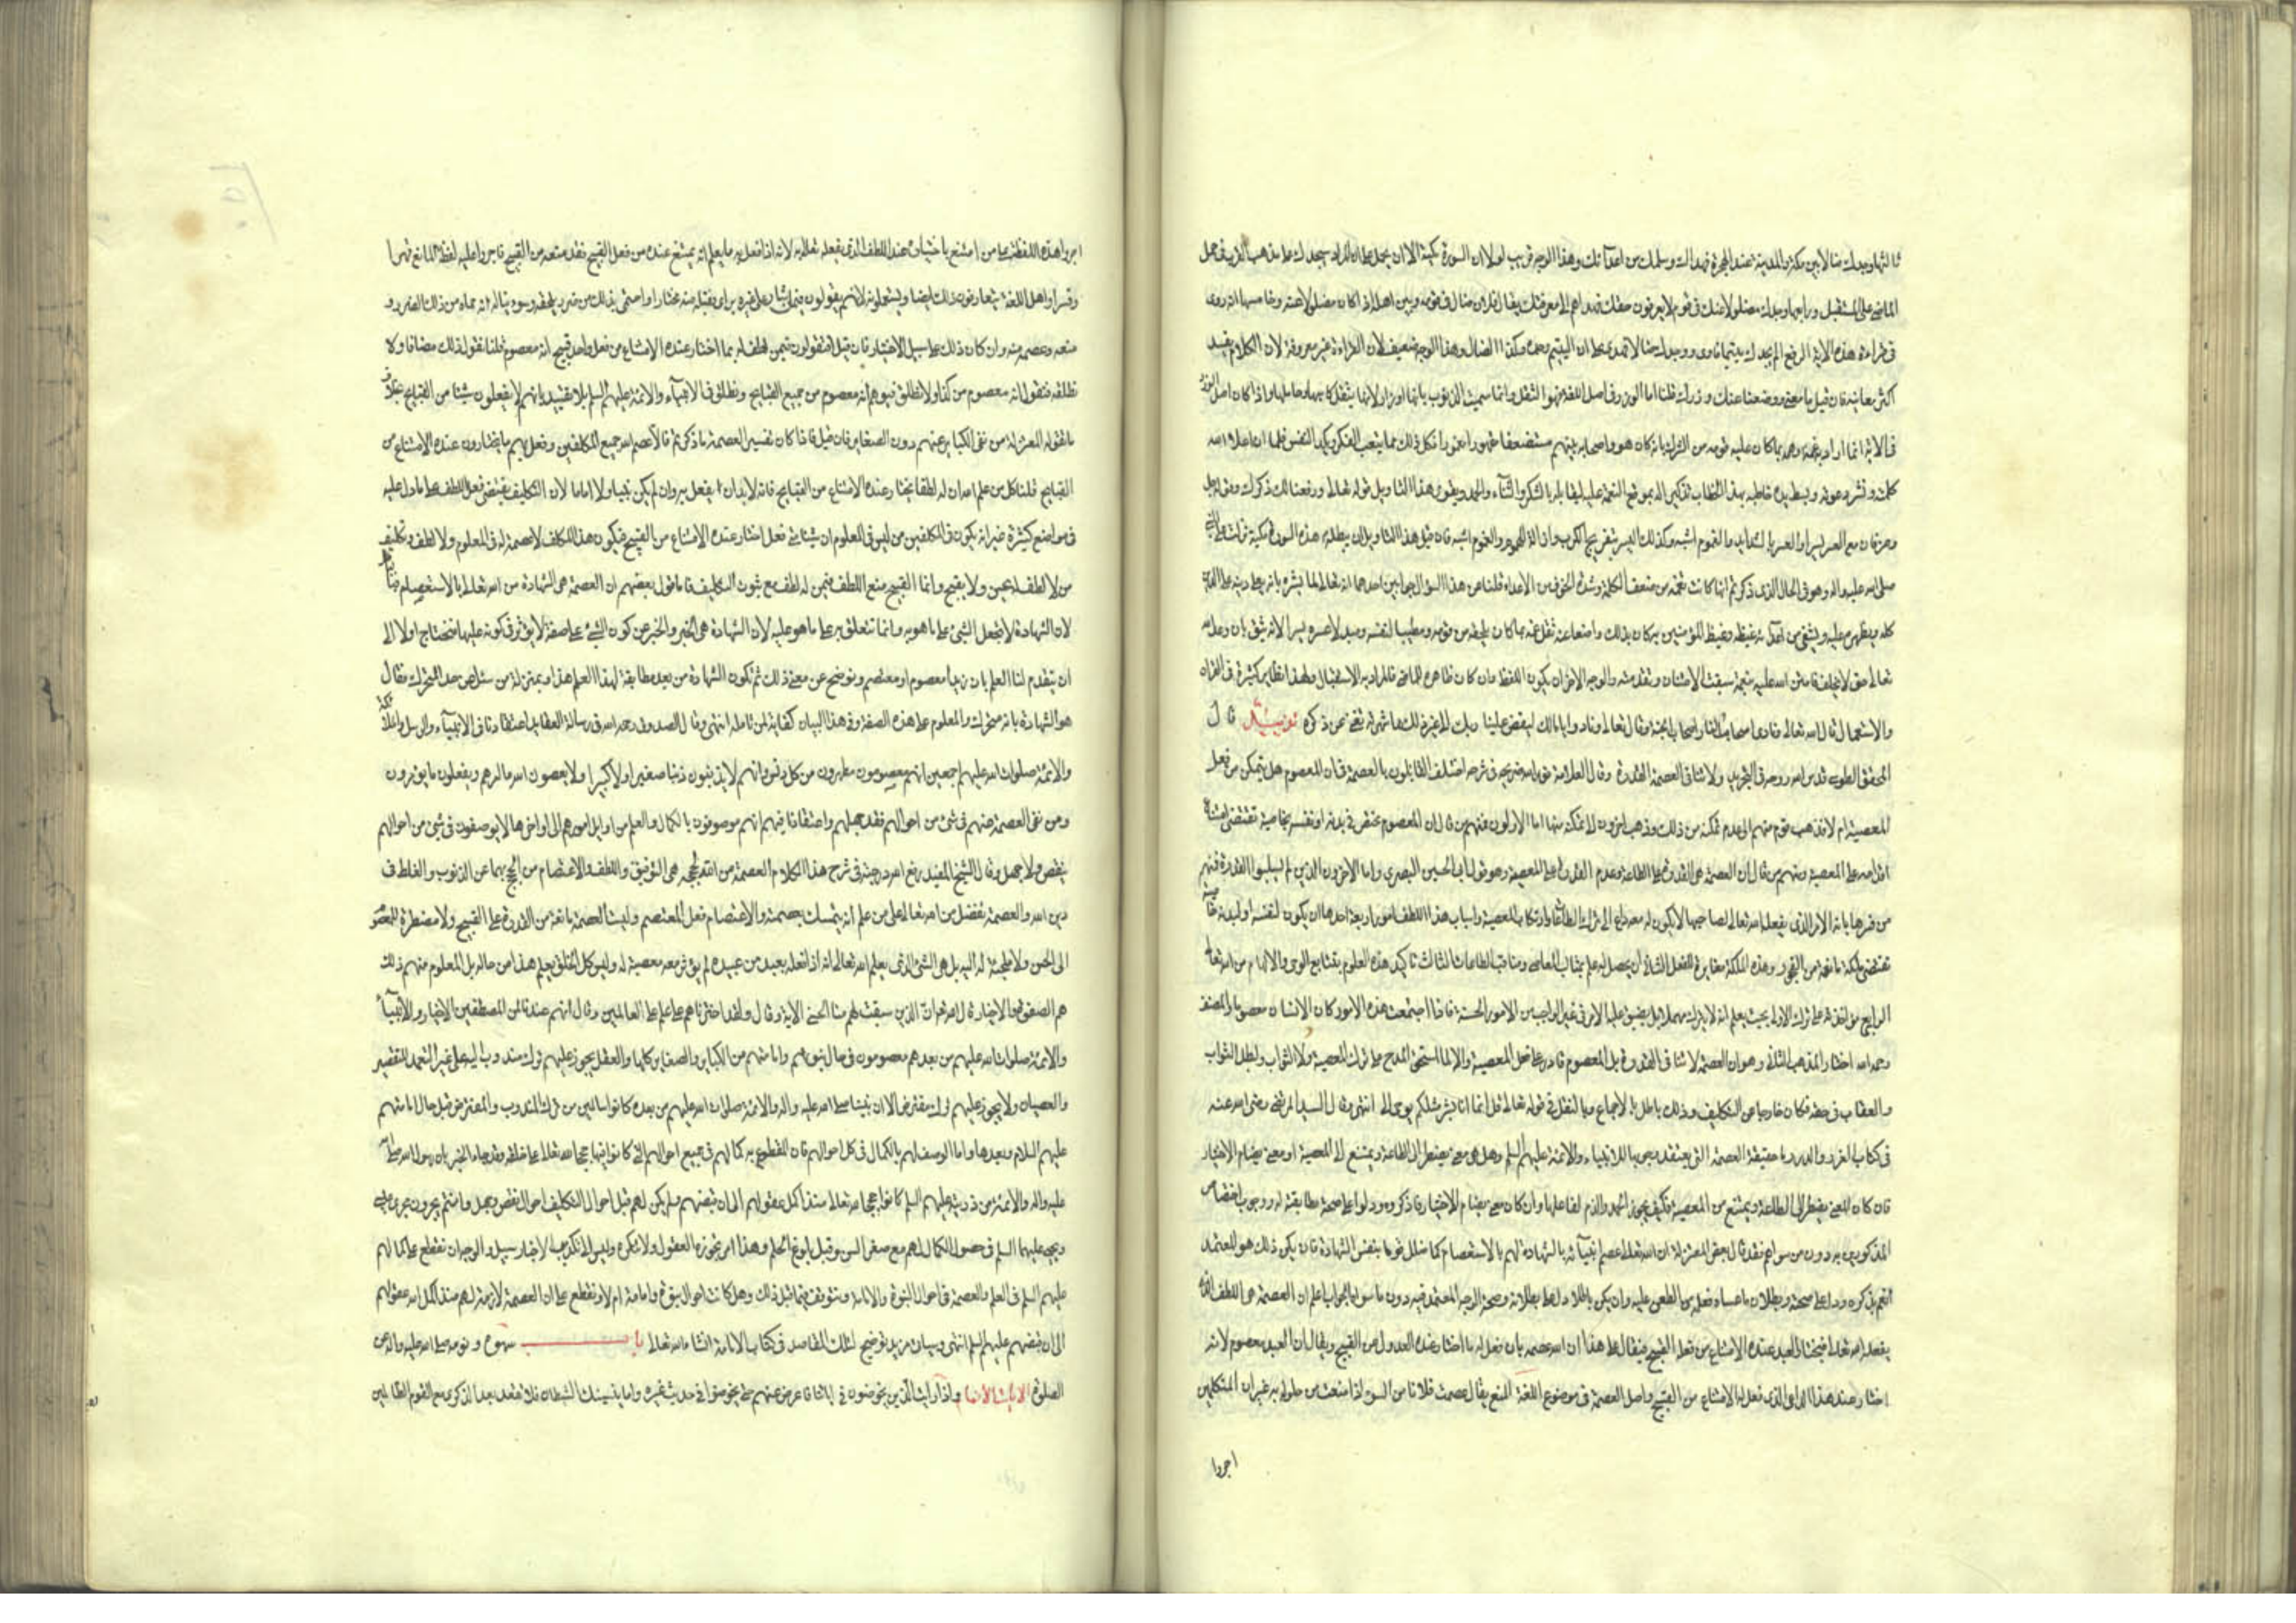 ثالثها وجدك ضالا بين مكة والمدينة عند الهجرة فهداك وسلمك من أعدائك وهذا الوجه قريب لولا ان السورة مكية الا ان يحمل على ان المراد سيجدك على مذهب العرب في حمل
الماضي على المستقبل ورابعها وجدك مضلولا عنك في قوم لا يعرفون حقك فهداهم الى معرفتك يقال فلان ضال في قومه وبين اهله اذا كان مضلولا عنه وخامسها انه روى
في قراءة هذه الاية الرفع الم يجدك يتيم فاوى ووجدك ضال فهدى على ان اليتيم وجده وكذا الضال وهذا الوجه ضعيف لان القراءة غير معروفة لان الكلام يفسد
اكثر معانيه فان قيل ما معنى ووضعنا عنك وزرك قلنا اما الوزر في اصل اللغة فهو الثقل وانما سميت الذنوب بانها اوزار لانها يثقل كاسبها وحاملها واذا كان اصل الوزر
في الاية انما اراد به غمه وهمه بما كان عليه قومه من الشرك بانه كان هو واصحابه بينهم مستضعفا مقهورا مغمورا فكل ذلك مما يتعب الفكر ويكد النفس فلما ان اعلا الله
كلمته ونشر دعوته وبسط يده خاطبه بهذا الخطاب تذكيرا له بموقع النعمة عليه ليقابله بالشكر والثناء والحمد ويقوى هذا التاويل قوله تعالى ورفعنا لك ذكرك وقوله جل
وعز فان مع العسر يسرا والعسر بالشدايد والغموم اشبه وكذلك اليسر بتفريج الكرب وازالة الهموم والغموم اشبه فان قيل هذا التاويل يبطله ان هذه السورة مكية نزلت على النبي
صلى الله عليه واله وهو في الحال الذي ذكرتم انها كانت تغمه من ضعف الكلمة وشدة الخوف من الاعداء قلنا عن هذا السؤال جوابين احدهما انه تعالى لما بشره بانه يعلى دينه على الدين
كله ويظهره عليه ويشفى من اعدائه غيظه وغيظ المؤمنين به كان بذلك واضعا عنه ثقل غمه بما كان يلحقه من قومه ومطيبا لنفسه ومبدلا عسره يسرا لانه يثق بان وعد الله
تعالى حق لا يخلف فامتن الله عليه بنعمة سبقت الامتنان وتقدمته والوجه الاخر ان يكون اللفظ وان كان ظاهره للماضي فالمراد به الاستقبال ولهذا نظاير كثيرة في القران
والاستعمال قال الله تعالى ونادى اصحاب النار اصحاب الجنة وقال تعالى ونادوا يا مالك ليقض علينا ربك الى غير ذلك مما شهرته تغنى عن ذكره تذييل قال
المحقق الطوسي قدس الله روحه في التجريد ولا تنافي العصمة القدرة وقال العلامة نور الله ضريحه في شرحه اختلف القائلون بالعصمة في ان المعصوم هل يتمكن من فعل
المعصية ام لا فذهب قوم منهم الى عدم تمكنه من ذلك وذهب اخرون الى تمكنه منها اما الاولون فمنهم من قال ان المعصوم مختص في بدنه او نفسه بخاصية تقتضي امتناع
اقدامه على المعصية ومنهم من قال ان العصمة هي القدرة على الطاعة وعدم القدرة على المعصية وهو قول ابي الحسين البصري واما الاخرون الذين لم يسلبوا القدرة فمنهم
من فسرها بانه الامر الذي يفعله الله تعالى لصاحبها لا يكون له معه داع الى ترك الطاعة وارتكاب المعصية واسباب هذا اللطف امور اربعة احدها ان يكون لنفسه او لبدنه خاصية
تقتضي ملكة مانعة من الفجور وهذه الملكة مغايرة للفعل الثاني ان يحصل له علم بمثالب المعاصي ومناقب الطاعات الثالث تاكيد هذه العلوم بتتابع الوحي والالهام من الله تعالى
الرابع مؤاخذته على ترك الاولى بحيث يعلم انه لا يترك مهملا بل يضيق عليه الامر في غير الواجب من الامور الحسنة فاذا اجتمعت هذه الامور كان الانسان معصوما والمصنف
رحمه الله اختار المذهب الثاني وهو ان العصمة لا تنافي القدرة بل المعصوم قادر على فعل المعصية والا لما استحق المدح على ترك المعصية ولا الثواب ولبطل الثواب
والعقاب في حقه فكان خارجا عن التكليف وذلك باطل بالاجماع وبالنقل في قوله تعالى قل انما انا بشر مثلكم يوحى الى انتهى وقال السيد المرتضى رضي الله عنه
في كتاب الغرر والدرر ما حقيقة العصمة التي يعتقد وجوبها للانبياء والائمة عليهم السلم وهل هي معنى يضطر الى الطاعة ويمنع من المعصية او معنى يضام الاختيار
فان كان المعنى يضطر الى الطاعة ويمنع من المعصية فكيف يجوز الحمد والذم لفاعلها وان كان معنى يضام الاختيار فاذكروه ودلوا على صحة مطابقته له ووجوب اختصاص
المذكورين به دون من سواهم فقد قال بعض المعتزلة ان الله تعالى عصم انبيائه بالشهادة لهم بالاستعصام كما ضلل قوما بنفس الشهادة فان يكن ذلك هو المعتمد
انعم بذكره ودل على صحته وبطلان ما عساه فعله من الطعن عليه وان يكن باطلا دل على بطلانه وصحة الوجه المعتمد فيه دون ما سواه الجواب اعلم ان العصمة هي اللطف الذي
يفعله الله تعالى فيختار العبد عنده الامتناع من فعل القبيح فيقال على هذا ان الله عصمه بان فعل له ما اختار عنده العدول عن القبيح ويقال ان العبد معصوم لانه
اختار عند هذا الداعي الذي فعل له الامتناع من القبيح واصل العصمة في موضوع اللغة المنع يقال عصمت فلانا من السوء اذا منعت من حلوله به غير ان المتكلمين
اجروا
اجروا هذه اللفظة على من امتنع باختياره عند اللطف الذي يفعله الله تعالى به لانه اذا فعل به ما يعلم انه يمتنع عنده من فعل القبيح فقد منعه من القبيح فاجروا عليه لفظة المانع قهرا
وقسرا واهل اللغة يتعارفون ذلك ايضا ويستعملونه لانهم يقولون فيمن اشار على غيره براى فقبله منه مختارا واحتمى بذلك من ضرر يلحقه وسوء يناله انه حماه من ذلك الضرر و
منعه وعصمه منه وان كان ذلك على سبيل الاختيار فان قيل افتقولون فيمن لطف له بما اختار عنده الامتناع من فعل واحد قبيح انه معصوم قلنا نقول ذلك مضافا ولا
نطلقه فنقول انه معصوم من كذا ولا نطلق فيوهم انه معصوم من جميع القبايح ونطلق في الانبياء والائمة عليهم السلم بلا تقييد بانهم لا يفعلون شيئا من القبايح خلاف
ما تقوله المعتزلة من نفى الكباير عنهم دون الصغاير فان قيل فاذا كان تفسير العصمة ما ذكرتم فالا عصم الله جميع المكلفين وفعل بهم ما يختارون عنده الامتناع من
القبايح قلنا كل من علم الله ان له لطفا يختار عنده الامتناع من القبايح فانه لابد ان يفعل به وان لم يكن نبيا ولا اماما لان التكليف يقتضي فعل اللطف على ما دل عليه
في مواضع كثيرة غير انه يكون في المكلفين من ليس في المعلوم ان شيئا متى فعل اختار عنده الامتناع من القبيح فيكون هذا المكلف لا عصمة له في المعلوم ولا لطف وتكليف
من لا لطف له يحسن ولا يقبح وانما القبيح منع اللطف فيمن له لطف مع ثبوت التكليف فاما قول بعضهم ان العصمة هي الشهادة من الله تعالى بالاستعصام فباطل
لان الشهادة لا تجعل الشيء على ما هو به وانما تتعلق به على ما هو عليه لان الشهادة هي الخبر والخبر عن كون الشيء على صفة لا يؤثر في كونه عليها فنحتاج اولا الى
ان يتقدم لنا العلم بان زيدا معصوم او معتصم ونوضح عن معنى ذلك ثم تكون الشهادة من بعد مطابقة لهذا العلم وهذا بمنزلة من سئل عن حد المتحرك فقال
هو الشهادة بانه متحرك والمعلوم على هذه الصفة وفي هذا البيان كفاية لمن تامله انتهى وقال الصدوق رحمه الله في رسالة العقايد اعتقادنا في الانبياء والرسل والملائكة
والائمة صلوات الله عليهم اجمعين انهم معصومون مطهرون من كل دنس وانهم لا يذنبون ذنبا صغيرا ولا كبيرا ولا يعصون الله ما امرهم ويفعلون ما يؤمرون
ومن نفى العصمة عنهم في شيء من احوالهم فقد جهلهم واعتقادنا فيهم انهم موصوفون بالكمال والعلم من اوايل امورهم الى اواخرها لا يوصفون في شيء من احوالهم
بنقص ولا جهل وقال الشيخ المفيد رفع الله درجته في شرح هذا الكلام العصمة من الله لحججه هي التوفيق واللطف والاعتصام من الحجج بهما عن الذنوب والغلط في
دين الله والعصمة تفضل من الله تعالى على من علم انه يتمسك بعصمته والاعتصام فعل المعتصم وليست العصمة مانعة من القدرة على القبيح ولا مضطرة للمعصوم
الى الحسن ولا ملجئة له اليه بل هي الشيء الذي يعلم الله تعالى انه اذا فعله بعبد من عبيده لم يؤثر معه معصية له وليس كل الخلق يعلم هذا من حاله بل المعلوم منهم ذلك
هم الصفوة والاخيار قال الله تعالى ان الذين سبقت لهم منا الحسنى الاية وقال ولقد اخترناهم على علم على العالمين وقال وانهم عندنا لمن المصطفين الاخيار والانبياء
والائمة صلوات الله عليهم من بعدهم معصومون في حال نبوتهم وامامتهم من الكباير والصغاير كلها والعقل يجوز عليهم ترك مندوب اليه على غير التعمد للتقصير
والعصيان ولا يجوز عليهم ترك مفترض الا ان نبينا صلى الله عليه واله والائمة صلوات الله عليهم من بعده كانوا سالمين من ترك المندوب والمفترض قبل حال امامتهم
عليهم السلام وبعدها واما الوصف لهم بالكمال في كل احوالهم فان المقطوع به كمالهم في جميع احوالهم التي كانوا فيها حججا لله تعالى على خلقه وقد جاء الخبر بان رسول الله صلى الله
عليه واله والائمة من ذريته عليهم السلم كانوا حججا لله تعالى منذ اكمل عقولهم الى ان قبضهم ولم يكن لهم قبل احوال التكليف احوال نقص وجهل وانهم يجرون مجرى عيسى
ويحيى عليهما السلم في حصول الكمال لهم مع صغر السن وقبل بلوغ الحلم وهذا امر تجوزه العقول ولا تنكره وليس الى تكذيب الاخبار سبيل والوجه ان نقطع على كمالهم
عليهم السلم في العلم والعصمة في احوال النبوة والامامة ونتوقف فيما قبل ذلك وهل كانت احوال نبوة وامامة ام لا ونقطع على ان العصمة لازمة لهم منذ اكمل الله عقولهم
الى ان قبضهم عليهم السلم انتهى وسيات مزيد توضيح لتلك المقاصد في كتاب الامامة انشاء الله تعالى باب سهوه ونومه صلى الله عليه واله عن
الصلوة الايات الانعام واذا رايت الذين يخوضون في اياتنا فاعرض عنهم حتى يخوضوا في حديث غيره واما ينسينك الشيطان فلا تقعد بعد الذكرى مع القوم الظالمين